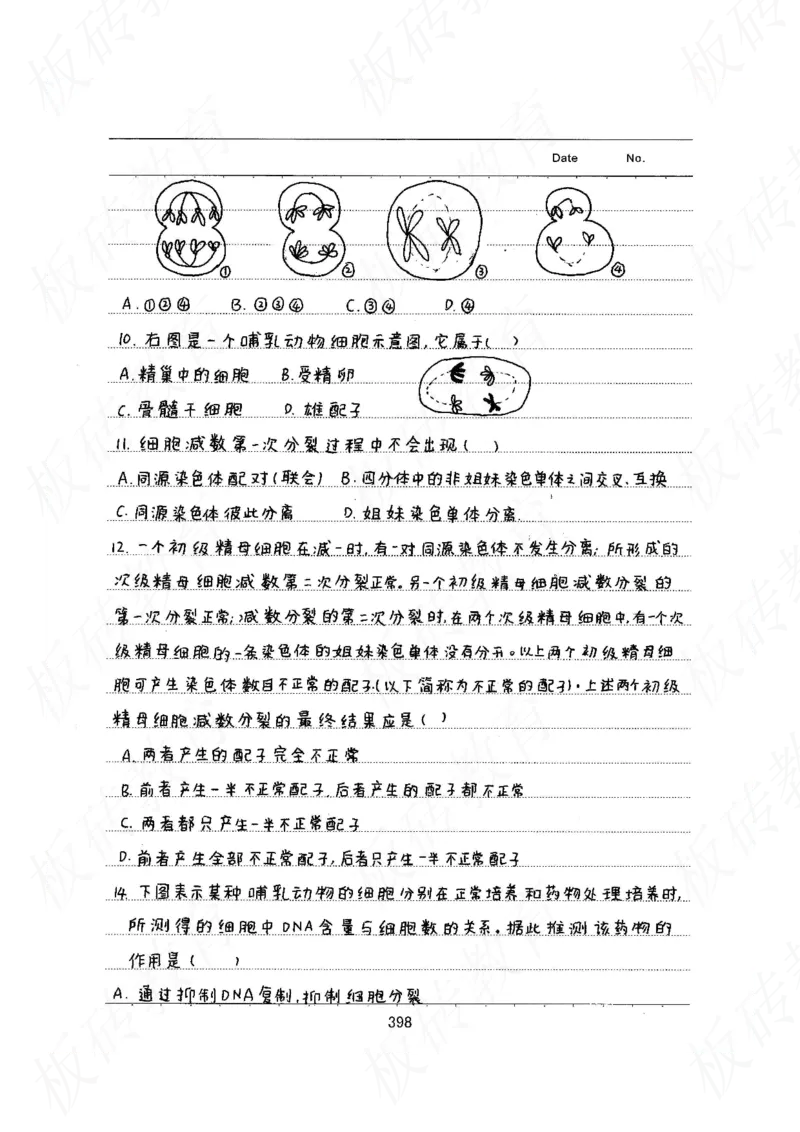 Date No.
① ② ③ ④
A.①②④ B.②③④ C.③④ D.④
10.右图是一个哺乳动物细胞示意图,它属于( )
A.精巢中的细胞 B.受精卵
C.骨髓干细胞 D.雄配子
11.细胞减数第一次分裂过程中不会出现( )
A.同源染色体配对(联会) B.四分体中的非姐妹染色单体之间交叉、互换
C.同源染色体彼此分离 D.姐妹染色单体分离.
12.一个初级精母细胞在减一时,有一对同源染色体不发生分离;所形成的
次级精母细胞减数第二次分裂正常。另一个初级精母细胞减数分裂的
第一次分裂正常;减数分裂的第二次分裂时,在两个次级精母细胞中,有一个次
级精母细胞的一条染色体的姐妹染色单体没有分开。以上两个初级精母细
胞可产生染色体数目不正常的配子(以下简称为不正常的配子).上述两个初级
精母细胞减数分裂的最终结果应是( )
A.两者产生的配子完全不正常
B.前者产生一半不正常配子,后者产生的配子都不正常
C.两者都只产生一半不正常配子
D.前者产生全部不正常配子,后者只产生一半不正常配子
14.下图表示某种哺乳动物的细胞分别在正常培养和药物处理培养时,
所测得的细胞中DNA含量与细胞数的关系。据此推测该药物的
作用是( )
A.通过抑制DNA复制,抑制细胞分裂
398
板砖教育